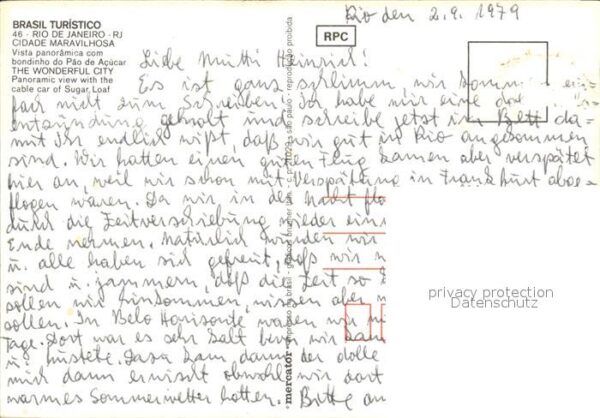 BRASIL TURÍSTICO
46 - RIO DE JANEIRO - RJ
CIDADE MARAVILHOSA
Vista panorâmica com
bondinho do Pão de Açúcar
THE WONDERFUL CITY
Panoramic view with the
cable car of Sugar Loaf
RPC
Rio den 2.9.1979
Liebe Mutti Heinrich!
Es ist ganz schlimm, wir kommen ein-
fach nicht zum Schreiben! Ich habe mir eine
entzündung geholt und schreibe jetzt im Bett da-
mit Ihr endlich wißt, daß wir gut in Rio angekommen
sind. Wir hatten einen guten Flug kamen aber verspätet
hier an, weil wir schon mit Verspätung in Frankfurt abge-
flogen waren. Da wir in der Nacht
durch die Zeitverschiebung wieder
Ende nehmen. Natürlich wurden wir
u. alle haben sich gefreut, daß wir
sind u. jammern, daß die Zeit so
sollen wir hinkommen, wissen aber
sollen. In Belo Horizonte waren wir
Tage. Dort war es sehr kalt
u. hustete. Dazu kam dann der tolle
mich dann erwischt obwohl wir dort
warmes Sommerwetter hatten. Bitte
mercator
privacy protection
Datenschutz